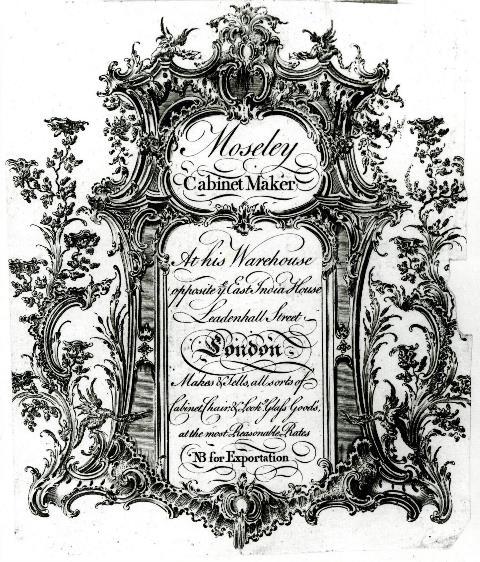 Moseley
Cabinet Maker
At his Warehouse
opposite ye East India House
Leadenhall Street
London
Makes & Sells, all sorts of
Cabinet, Chair, & Look.g Glass Goods,
at the most Reasonable Rates
NB for Exportation